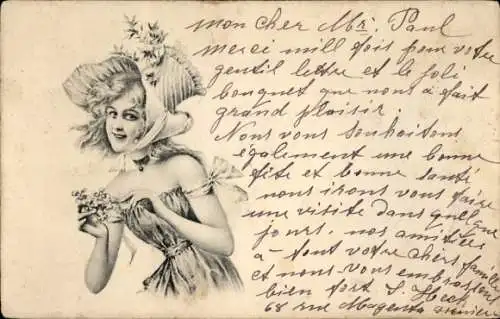 mon cher Mr. Paul
merci mill fois pour votre
gentil lettre et le joli
bouquet que nous a fait
grand plaisir.
Nous vous souhaitons
également une bonne
fête et bonne santé
nous irons vous faire
une visite dans quelque
jours. nos amitiés
à tout votre chers famille
et nous vous embrassons
bien fort S. Hech
68 rue Magenta